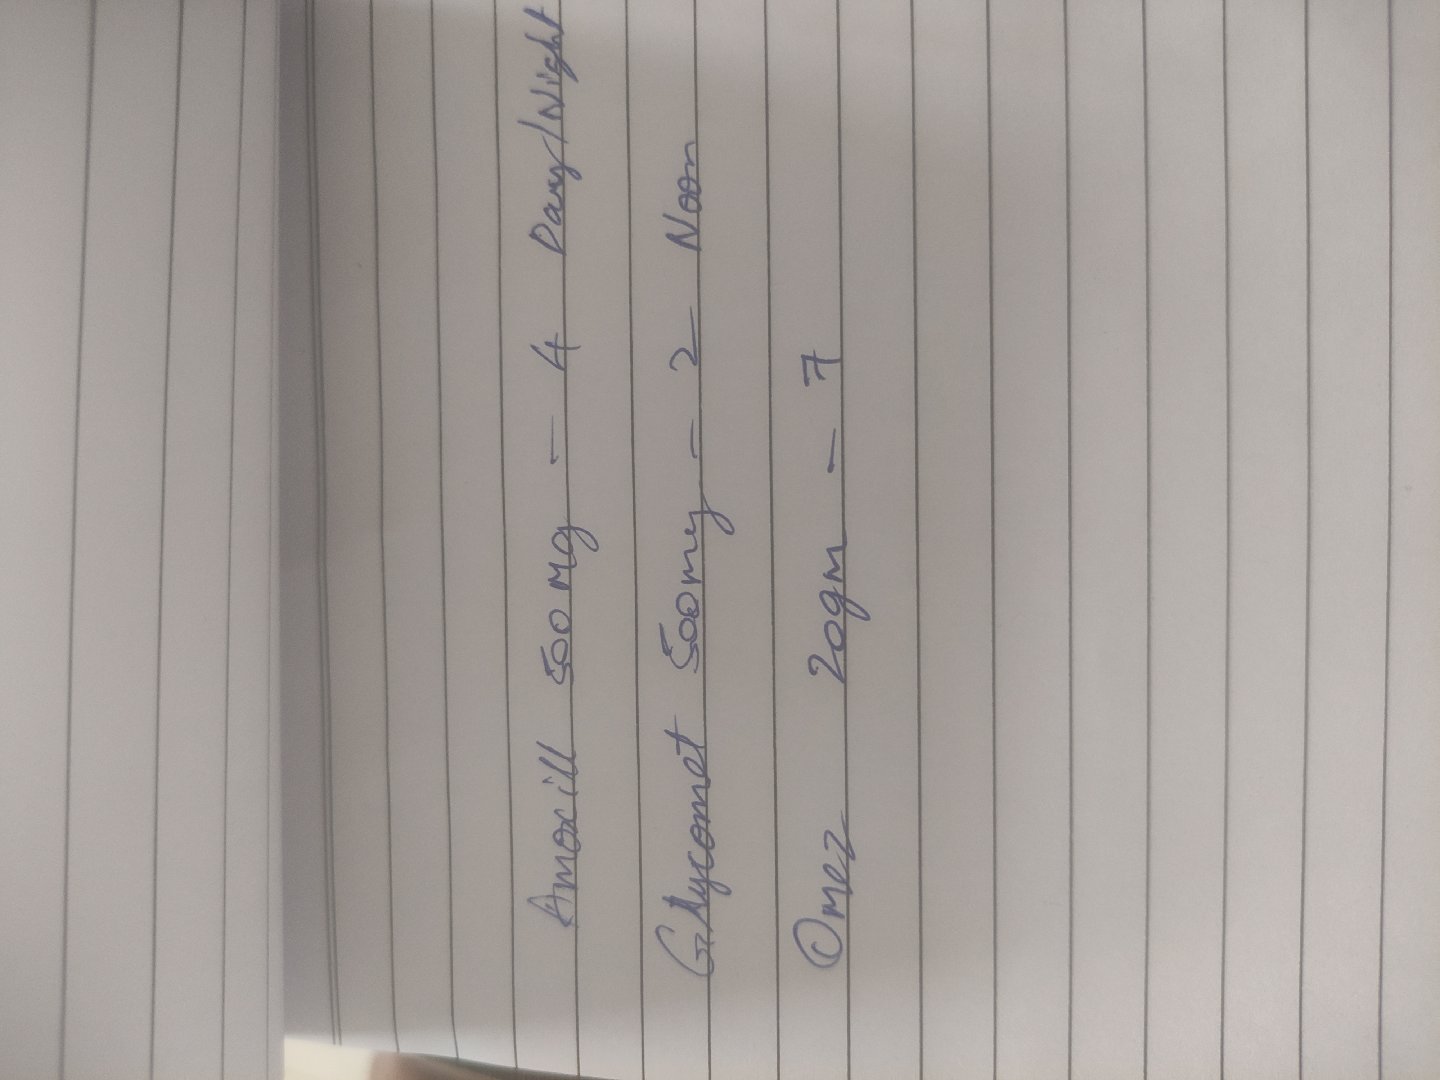 Amoxill 500 mg - 4 Day/Night
Glycomet 500mg - 2 Noon
Omez 20gm - 7